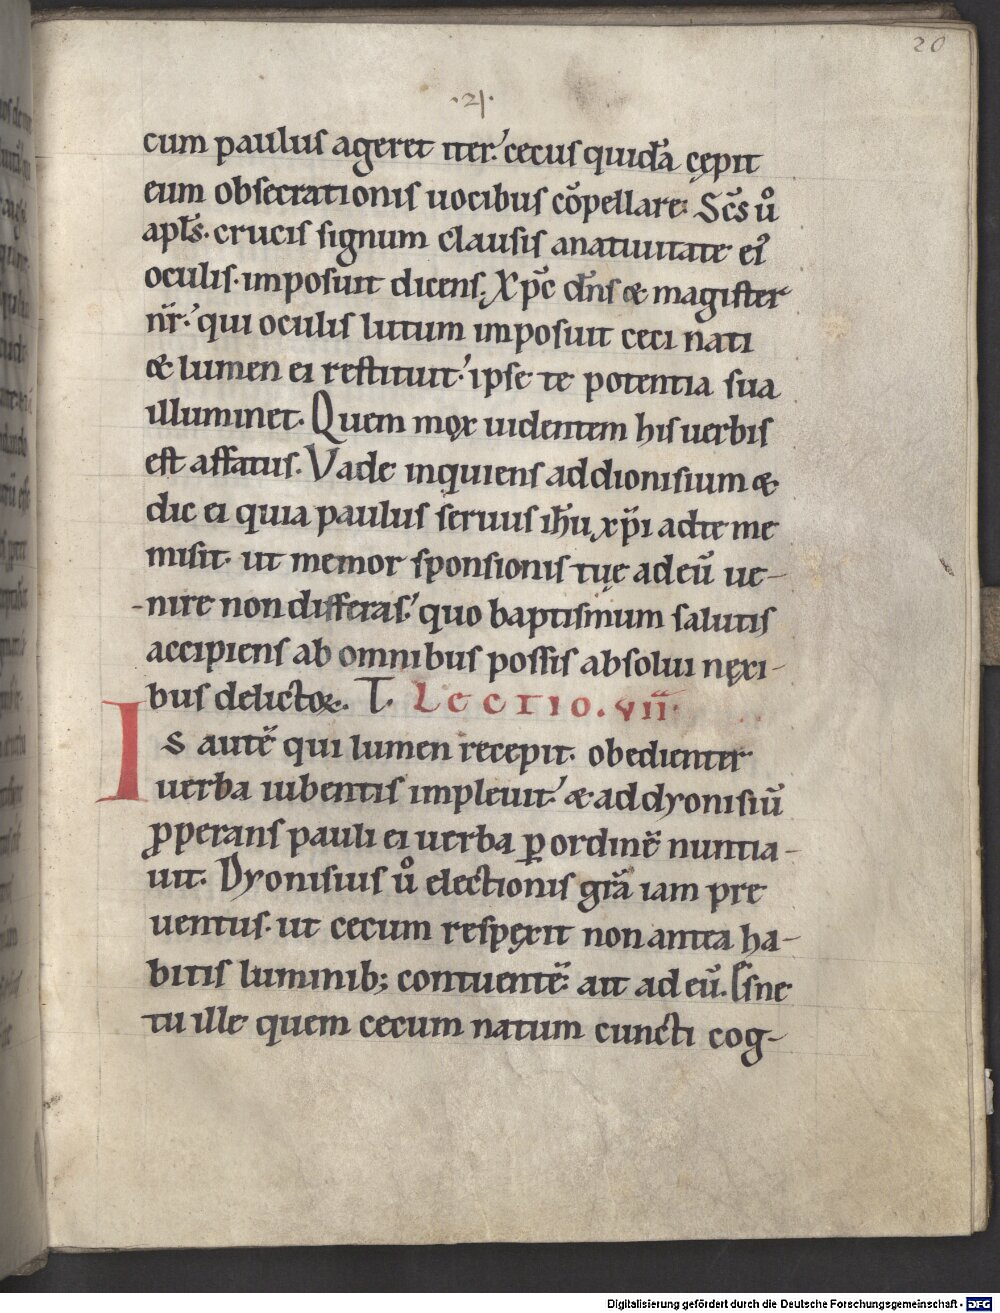 20
·21·
cum paulus ageret iter.' cecus quidā cępit
eum obsecrationis uocibus cōpellare: Sc̄s ů
apl̄s. crucis signum clausis anatiuitate ei'
oculis. imposuit dicens. Xp̄c dn̄s & magister
nr̄.' qui oculis lutum imposuit ceci nati
& lumen ei restituit.' ipse te potentia sua
illuminet. Quem mox uidentem his uerbis
est affatus. Vade inquiens addionisium &
dic ei quia paulus seruus ih̄u xp̄i adte me
misit. ut memor sponsionis tuę adeū ue-
nire non differas.' quo baptismum salutis
accipiens ab omnibus possis absolui nęxi-
bus delictoꝝ. T. Lectio.vii.
Is autē qui lumen recepit. obedienter
uerba iubentis impleuit.' & addyonisiū
ꝓperans pauli ei uerba ꝑ ordinē nuntia-
uit. Dyonisius ů electionis grā iam pre
uentus. ut cecum respęxit non antea ha-
bitis luminib; contuentē: ait ad eū. Esne
tu ille quem cecum natum cuncti cog-
Digitalisierung gefördert durch die Deutsche Forschungsgemeinschaft - DFG